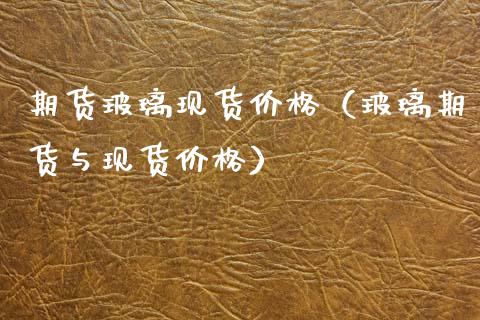 期货玻璃现货价格（玻璃期
货与现货价格）